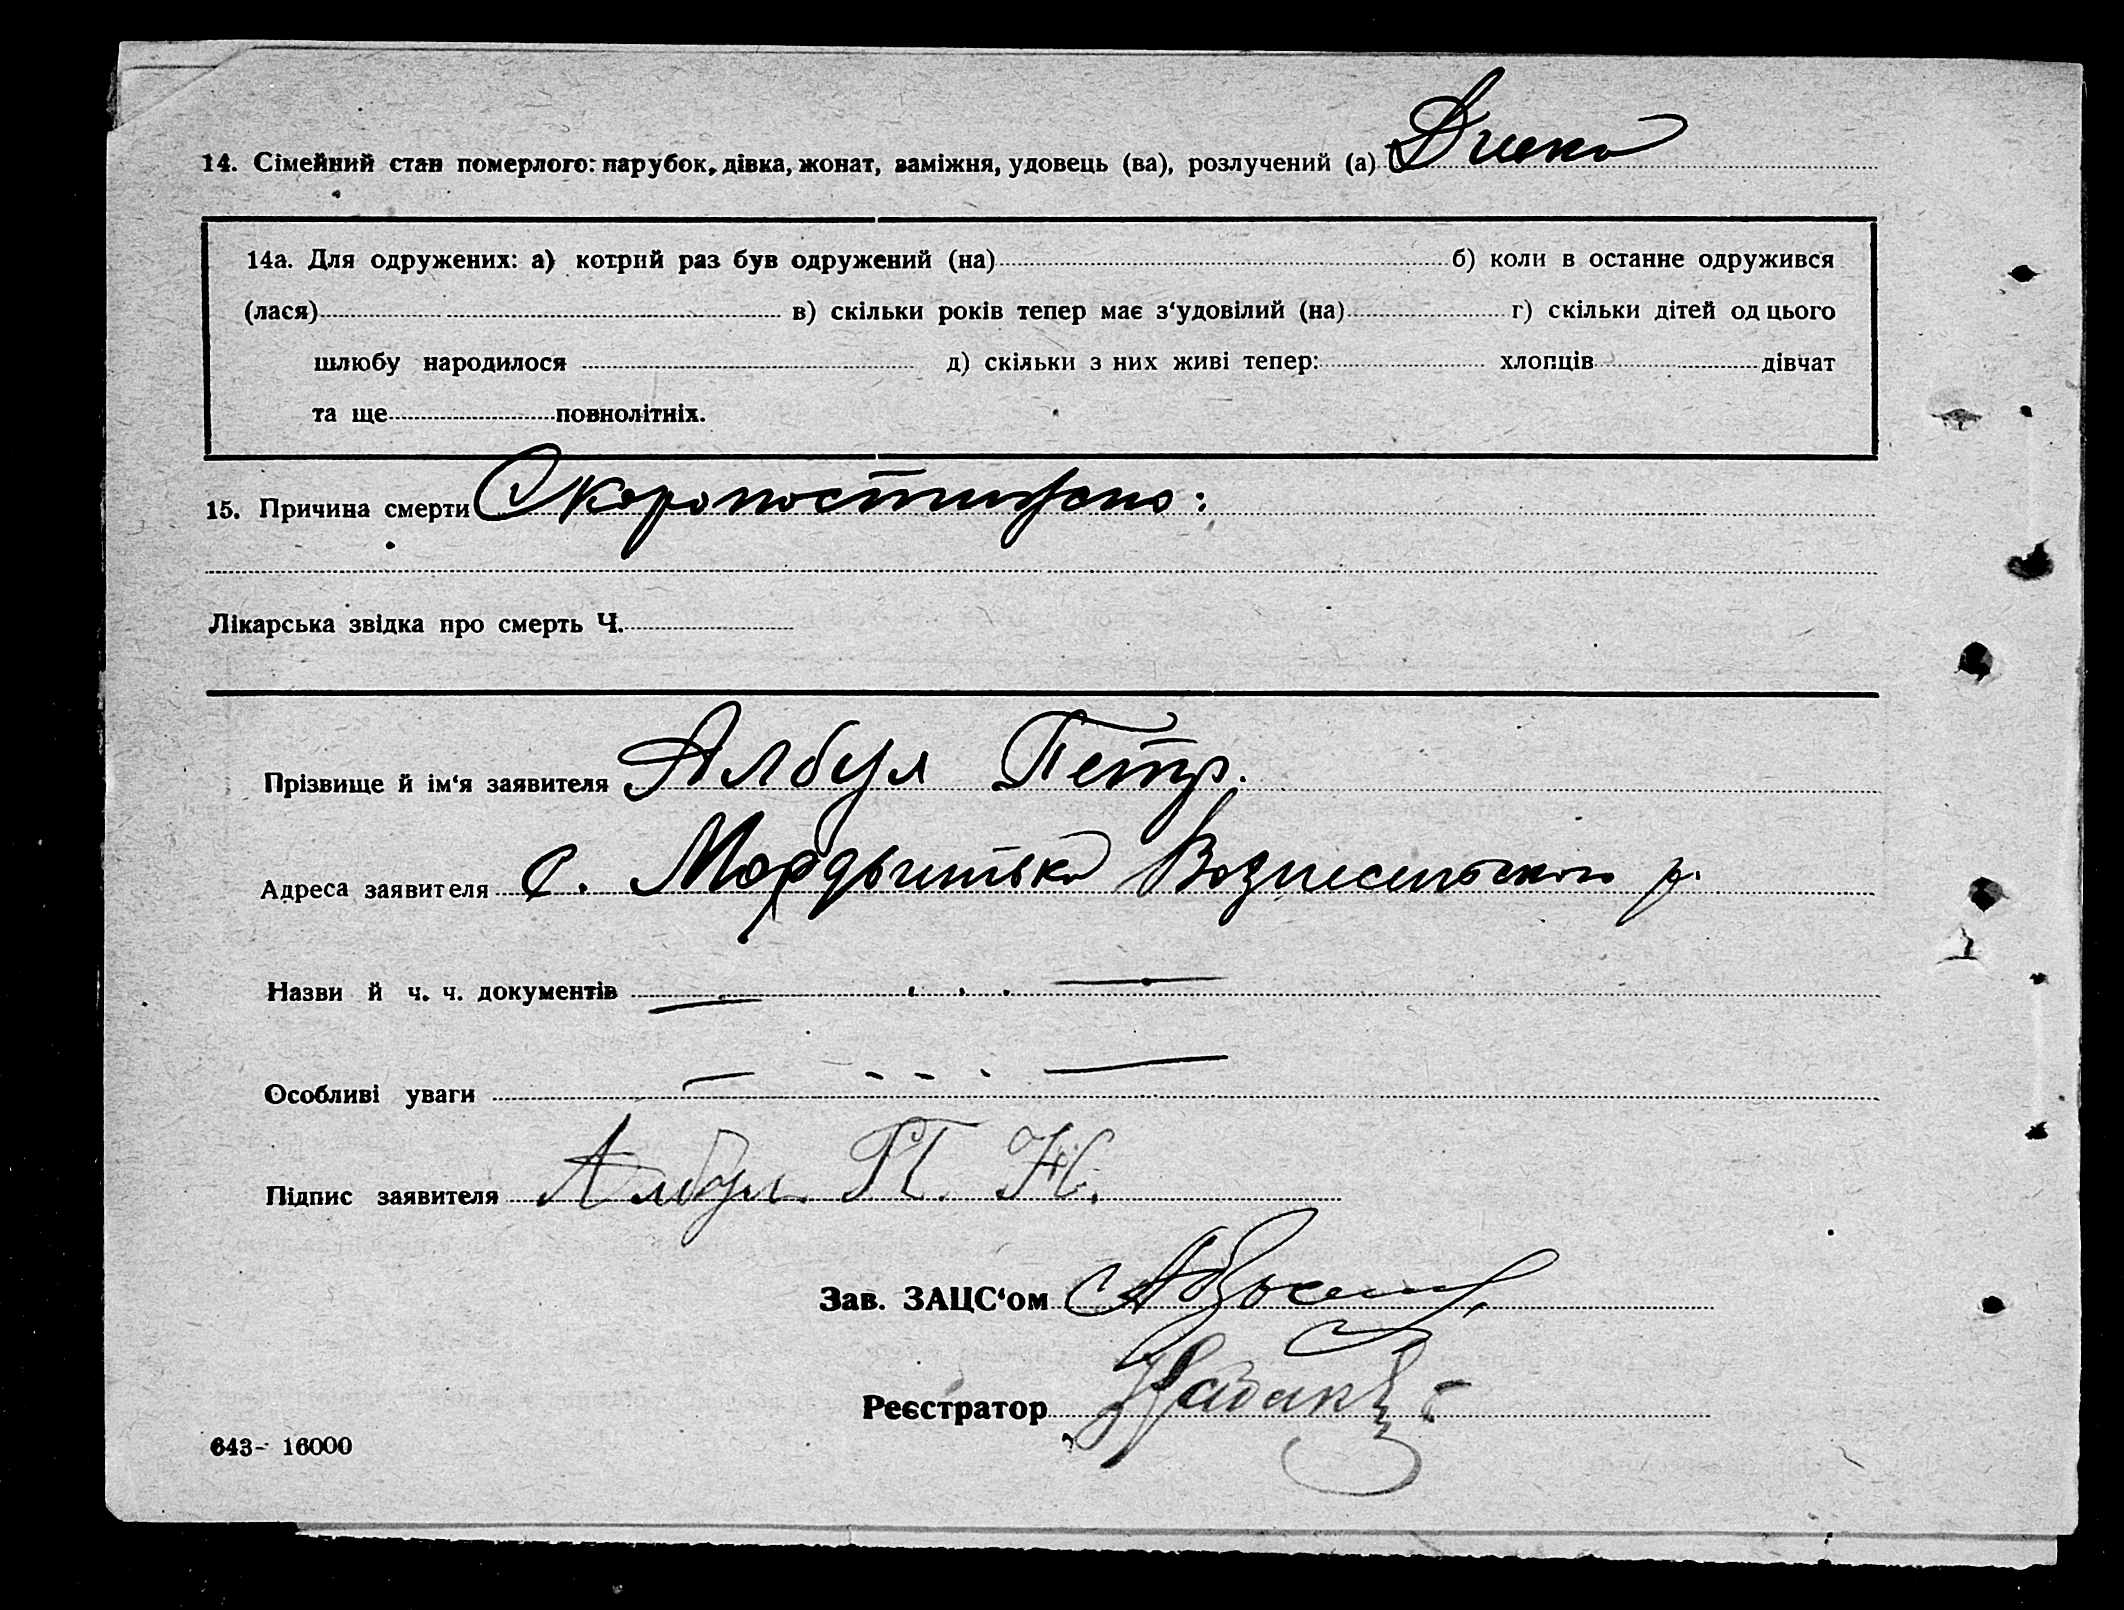 14. Сімейний стан померлого: парубок, дівка, жонат, заміжня, удовець (ва), розлучений (а)
14а. Для одружених: а) котрий раз був одружений (на) б) коли в останне одружився
(лася) в) скільки років тепер має з‘удовілий (на) г) скільки дітей од цього
шлюбу народилося д) скільки з них живі тепер: хлопців дівчат
та ще повнолітніх.
15. Причина смерти Скоропостижно:
Лікарська звідка про смерть Ч.
Прізвище й ім‘я заявителя Албул Петр.
Адреса заявителя с. Вознесенського р.
Назви й ч. ч. документів
Особливі уваги
Підпис заявителя Албул П. Н.
Зав. ЗАЦС‘ом
Реєстратор
643- 16000